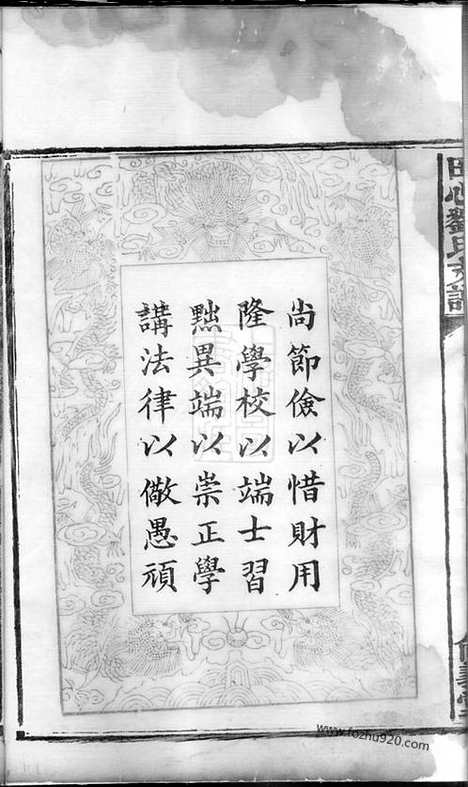 尚節儉以惜財用
隆學校以端士習
黜異端以崇正學
講法律以儆愚頑
田心劉氏支譜
www.fozhu920.com